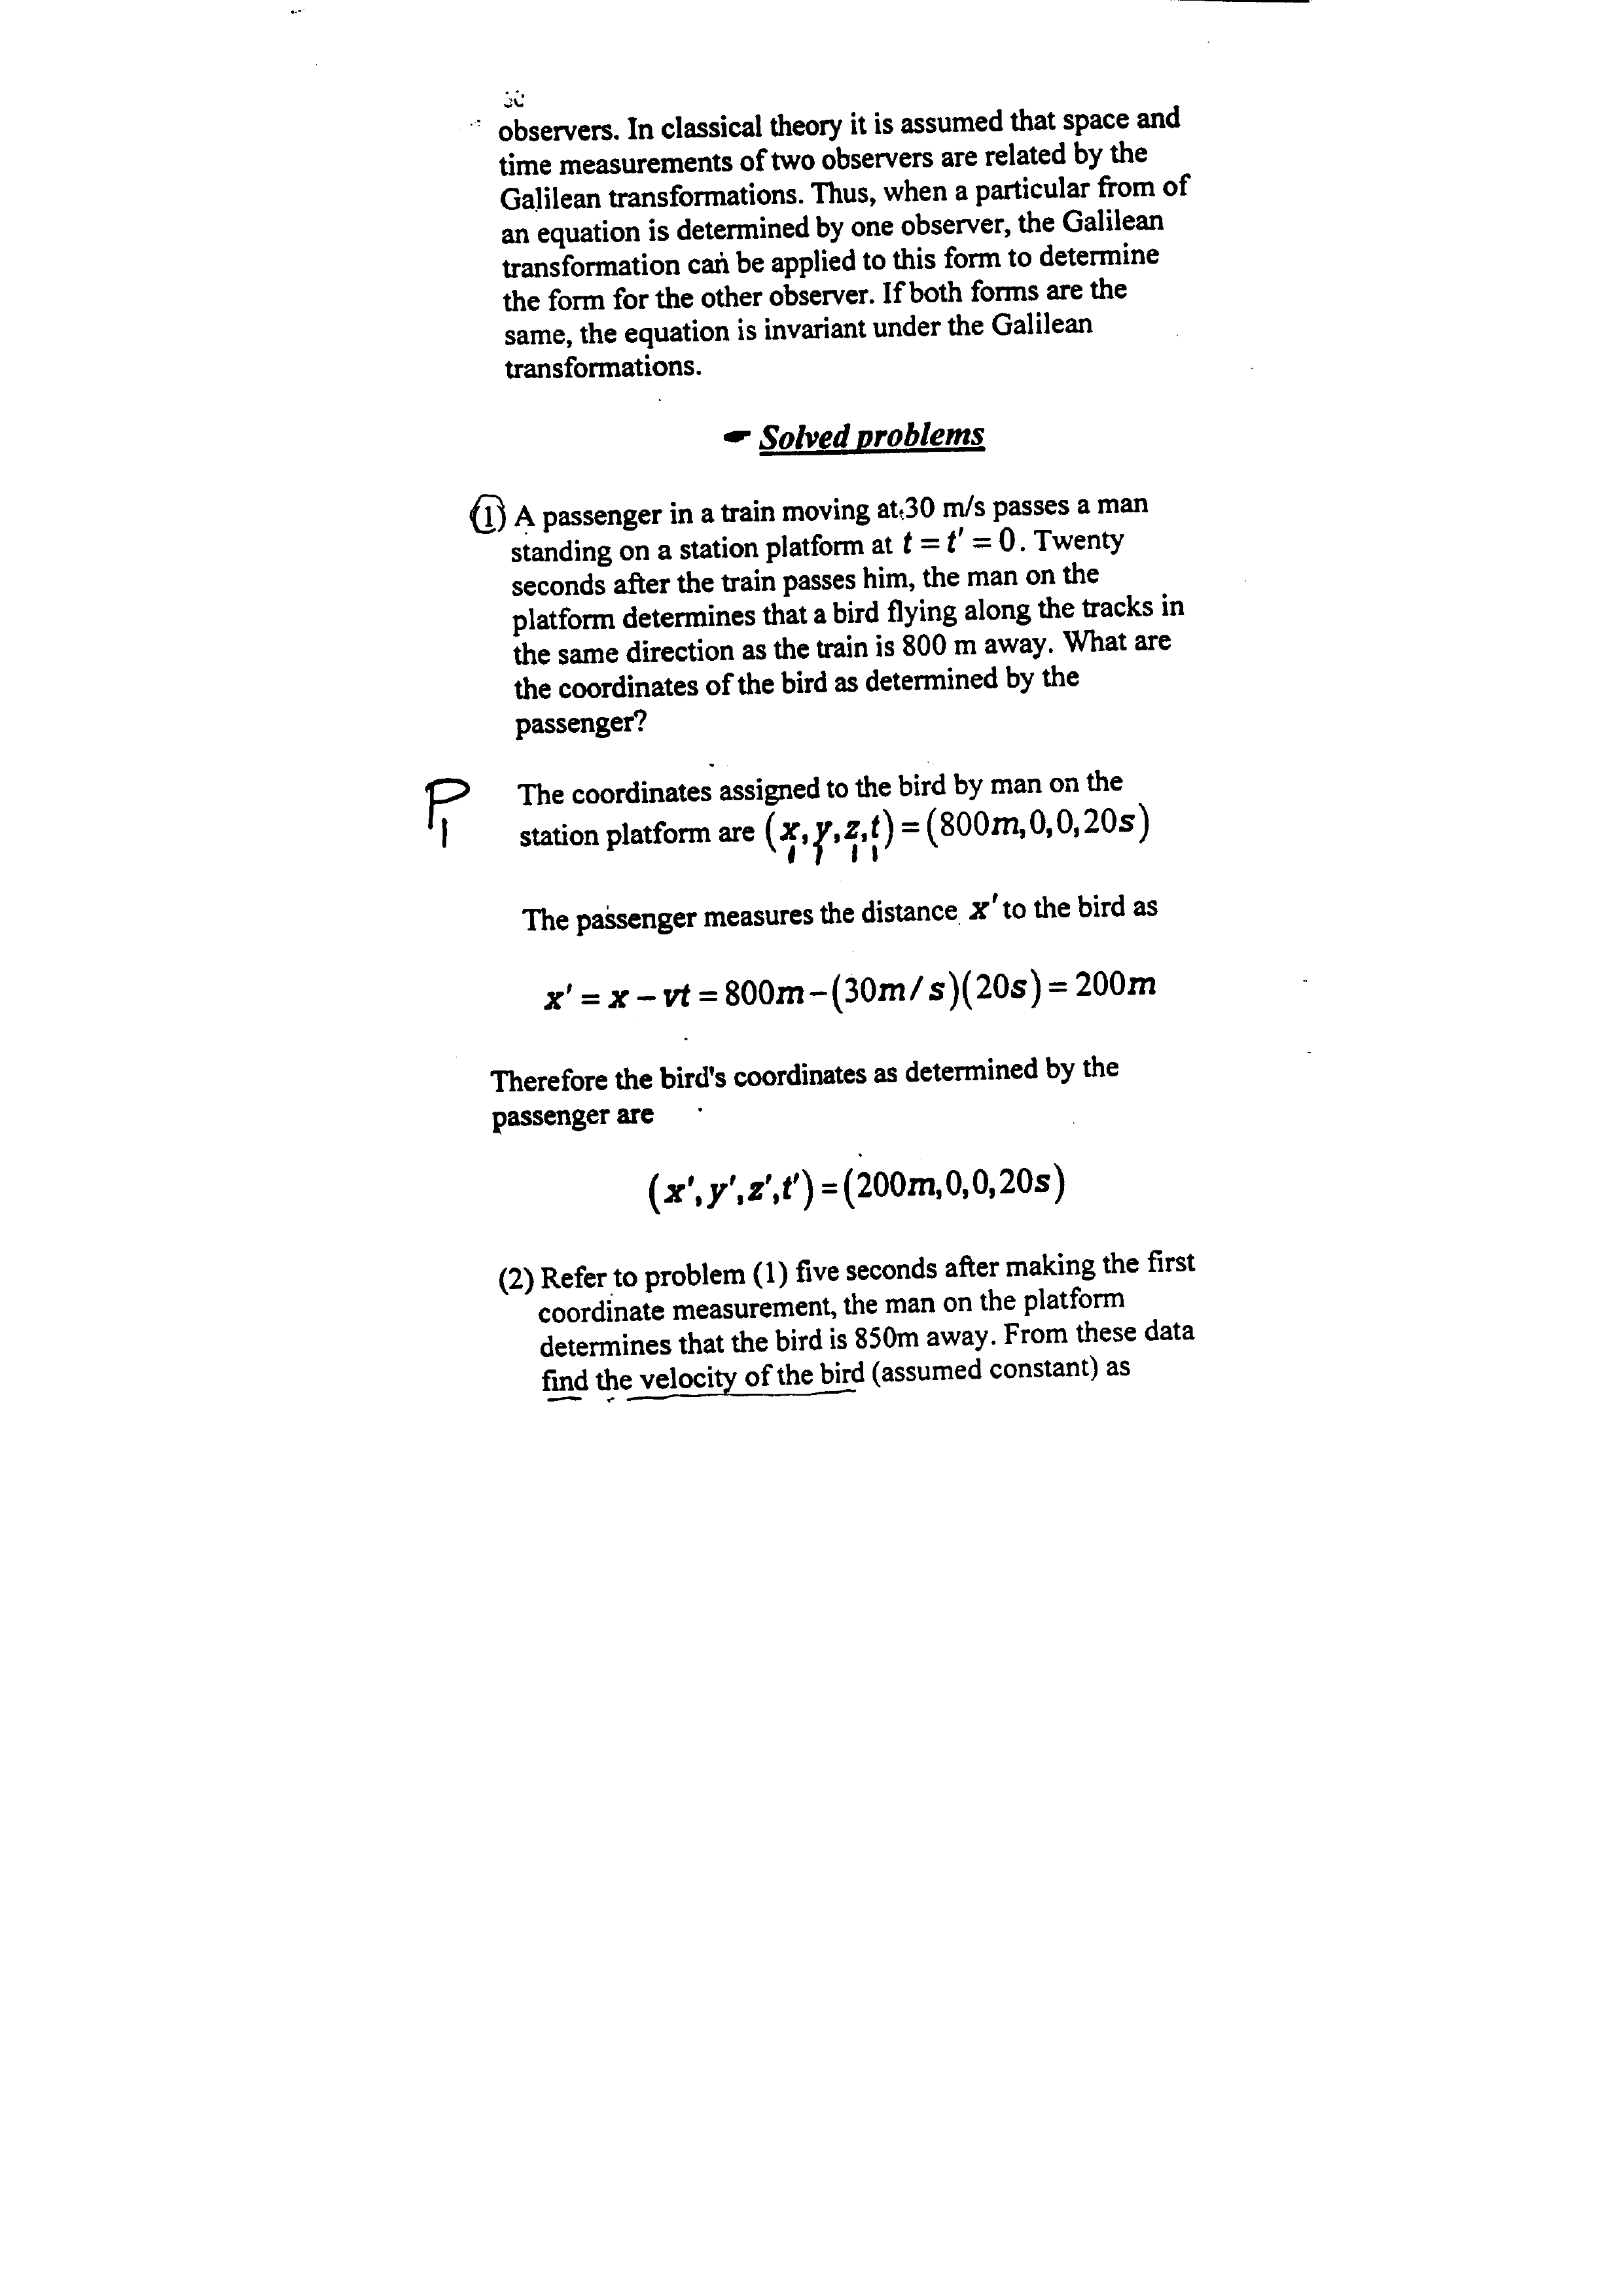 observers. In classical theory it is assumed that space and
time measurements of two observers are related by the
Galilean transformations. Thus, when a particular from of
an equation is determined by one observer, the Galilean
transformation can be applied to this form to determine
the form for the other observer. If both forms are the
same, the equation is invariant under the Galilean
transformations.
Solved problems
(1) A passenger in a train moving at 30 m/s passes a man
standing on a station platform at t = t' = 0. Twenty
seconds after the train passes him, the man on the
platform determines that a bird flying along the tracks in
the same direction as the train is 800 m away. What are
the coordinates of the bird as determined by the
passenger?
The coordinates assigned to the bird by man on the
station platform are (x,y,z,t) = (800m,0,0,20s)
The passenger measures the distance x' to the bird as
x' = x − vt = 800m − (30m/s)(20s) = 200m
Therefore the bird's coordinates as determined by the
passenger are
(x',y',z',t') = (200m,0,0,20s)
(2) Refer to problem (1) five seconds after making the first
coordinate measurement, the man on the platform
determines that the bird is 850m away. From these data
find the velocity of the bird (assumed constant) as